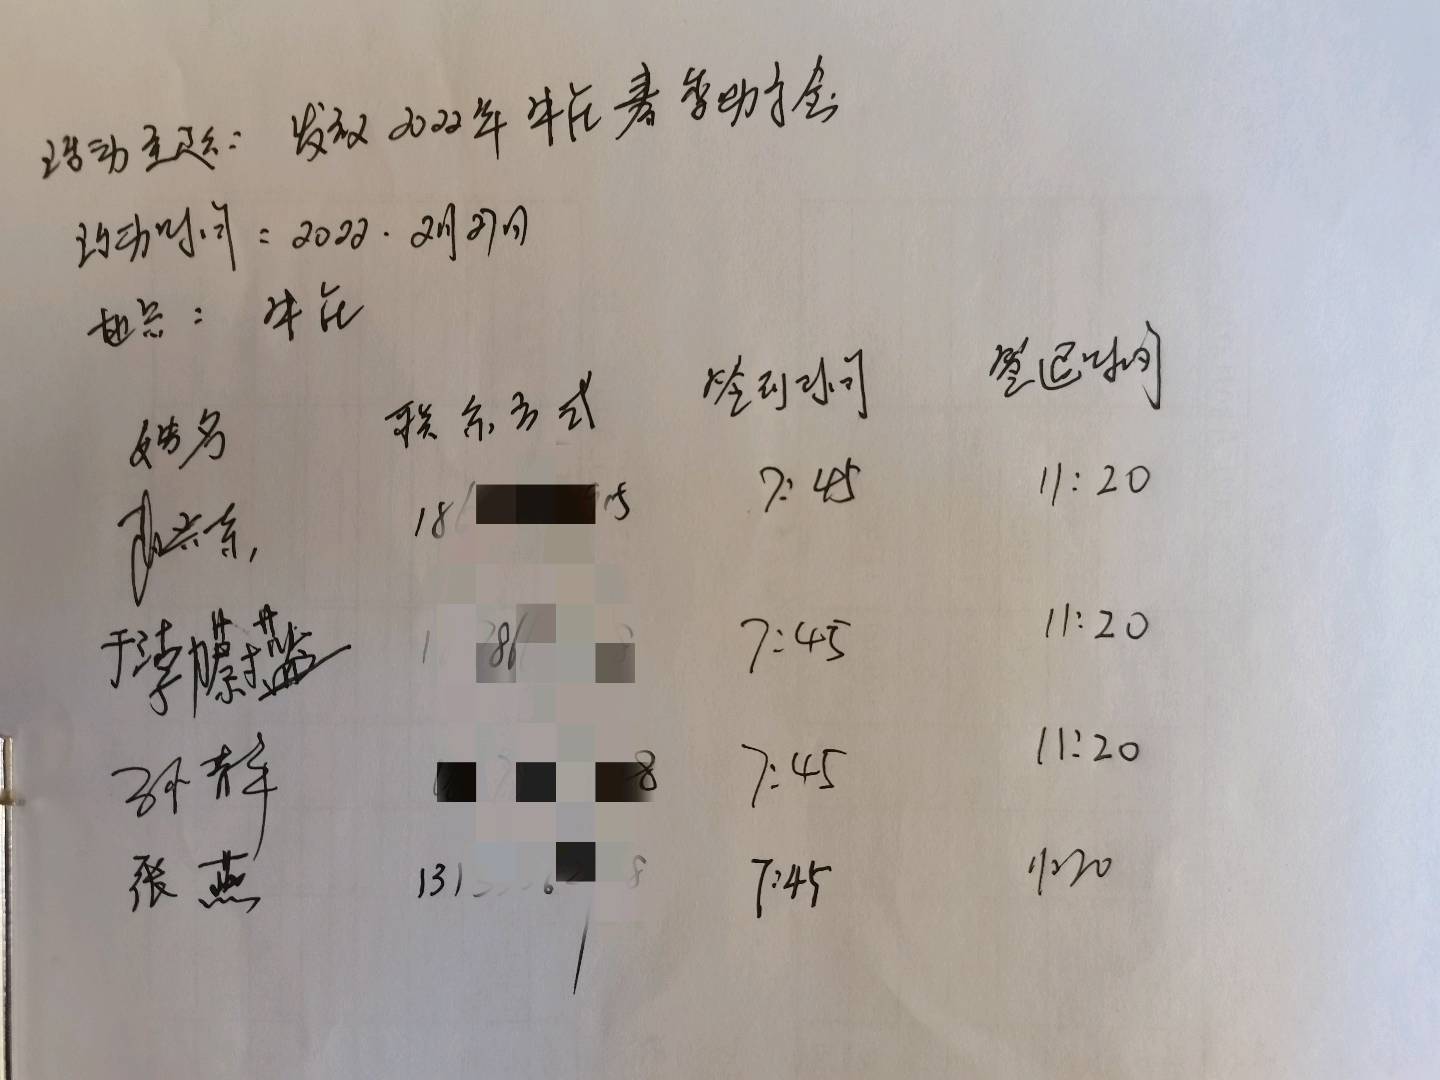 活动主题：发放2022年牛庄春季助学金
活动时间：2022.2月27日
地点：牛庄
姓名 联系方式 签到时间 签退时间
18 5 7:45 11:20
于 7:45 11:20
孙静 8 7:45 11:20
张燕 131 8 7:45 11:20